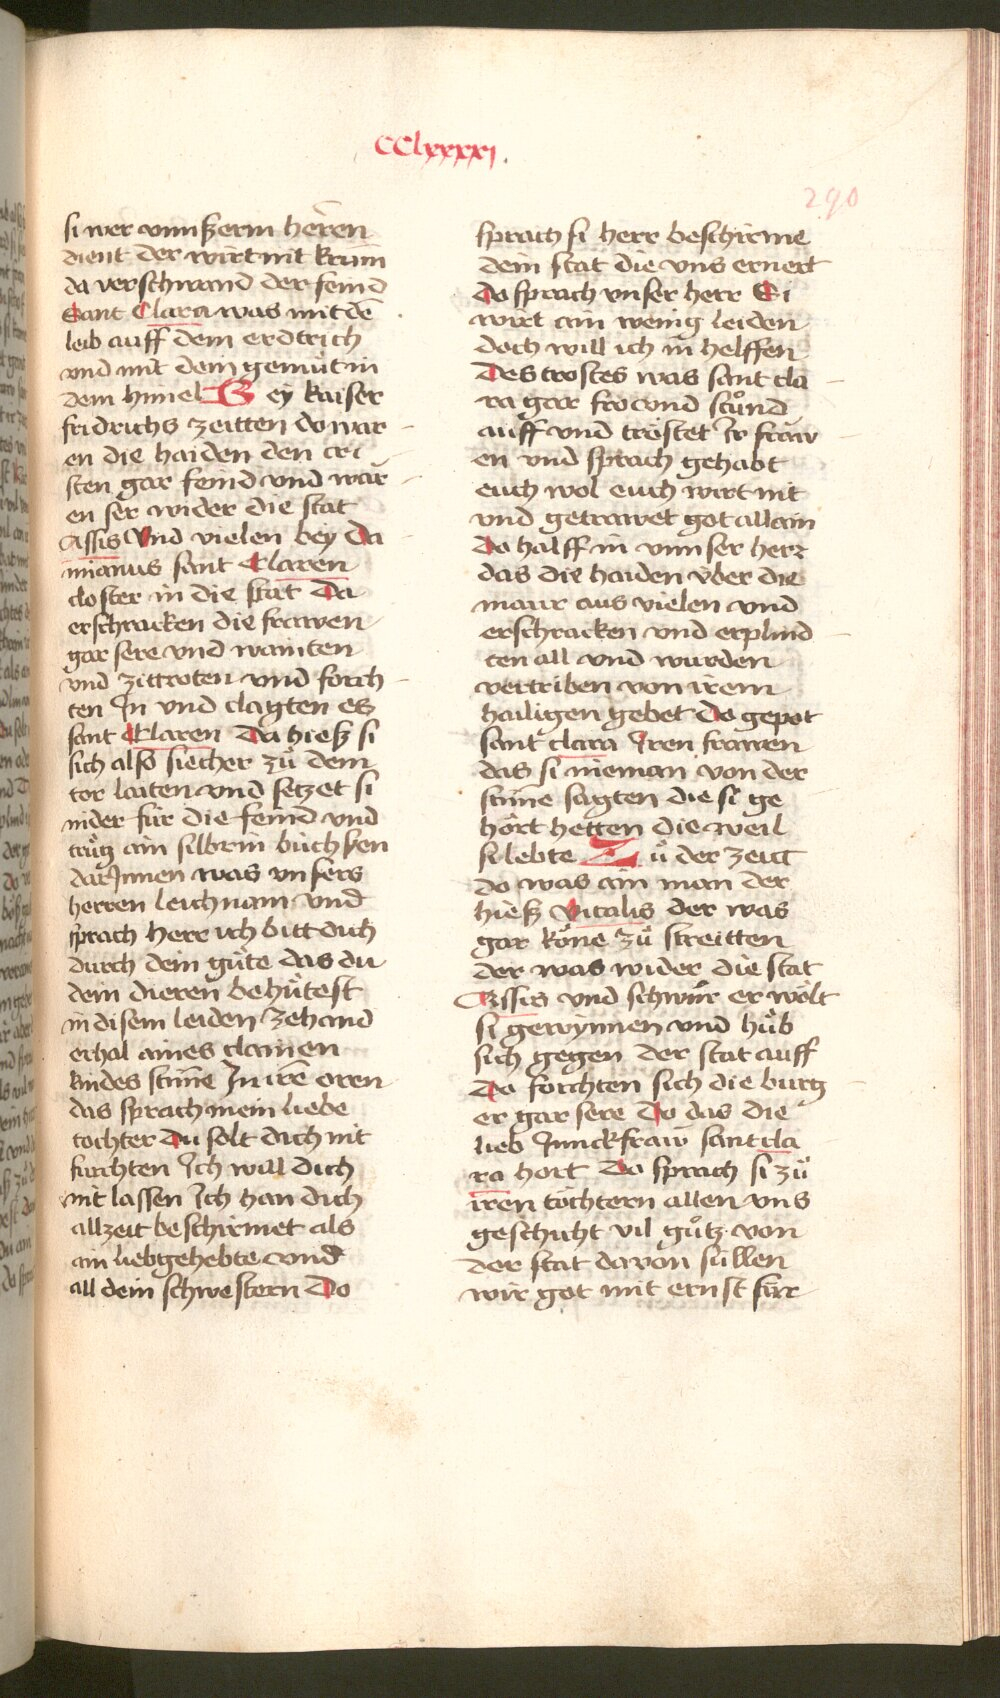 CClxxxxj.
290
si wer vnnßerm heren
dient der wirt nit krum
da verschwand der feind
Sant Clara was mit dē
leib auff dem erdtrich
vnd mit dem gemüt in
dem himel Bey kaiser
fridrichs zeitten do war
en die haiden den cri
sten gar feind vnd war
en ser wider die stat
Assis Vnd vielen bey Da
mianus sant Claren
closter in die stat Da
erschracken die frawen
gar sere vnd wainten
vnd zittroten vnd forch
ten In vnd clagten es
sant Claren Da hieß si
sich also siecher zů dem
tor laiten vnd setzet si
nider für die feind vnd
trůg ain silbrin büchsen
dar Innen was vnsers
herren leichnam vnd
sprach herr ich bitt dich
durch dein güte das du
dein dieren behütest
in disem leiden zehand
erhal aines clainen
kindes stīme In irē oren
das sprach mein liebe
tochter Du solt dich nit
fürchten Ich will dich
nit lassen Ich han dich
allzeit beschirmet als
ain liebgehebte vnd
all dein schwestern Do
sprach si herr beschirme
dein stat die vns ernert
Do sprach vnser herr Si
wirt ain wenig leiden
doch will ich in helffen
Des trostes was sant cla
ra gar fro vnd stůnd
auff vnd tröstet Ir fraw
en vnd sprach gehabt
euch wol euch wirt nit
vnd getrawet got allain
Do halff in vnnser herr
das die haiden vber die
maur aus vielen vnd
erschracken vnd erplind
ten all vnd wurden
vertriben von irem
hailigen gebet Do gepot
sant clara Iren frawen
das si nieman von der
stīme sagten die si ge
hört hetten die weil
si lebte Zů der zeit
do was ain man der
hieß Vitalis der was
gar köne zů streitten
der was wider die stat
Assis vnd schwůr er wölt
si gewynnen vnd hůb
sich gegen der stat auff
Do forchten sich die burg
er gar sere Do das die
lieb Junckfraw sant cla
ra hort Do sprach si zů
iren töchtern allen vns
geschicht vil gůtz von
der stat davon süllen
wir got mit ernst für